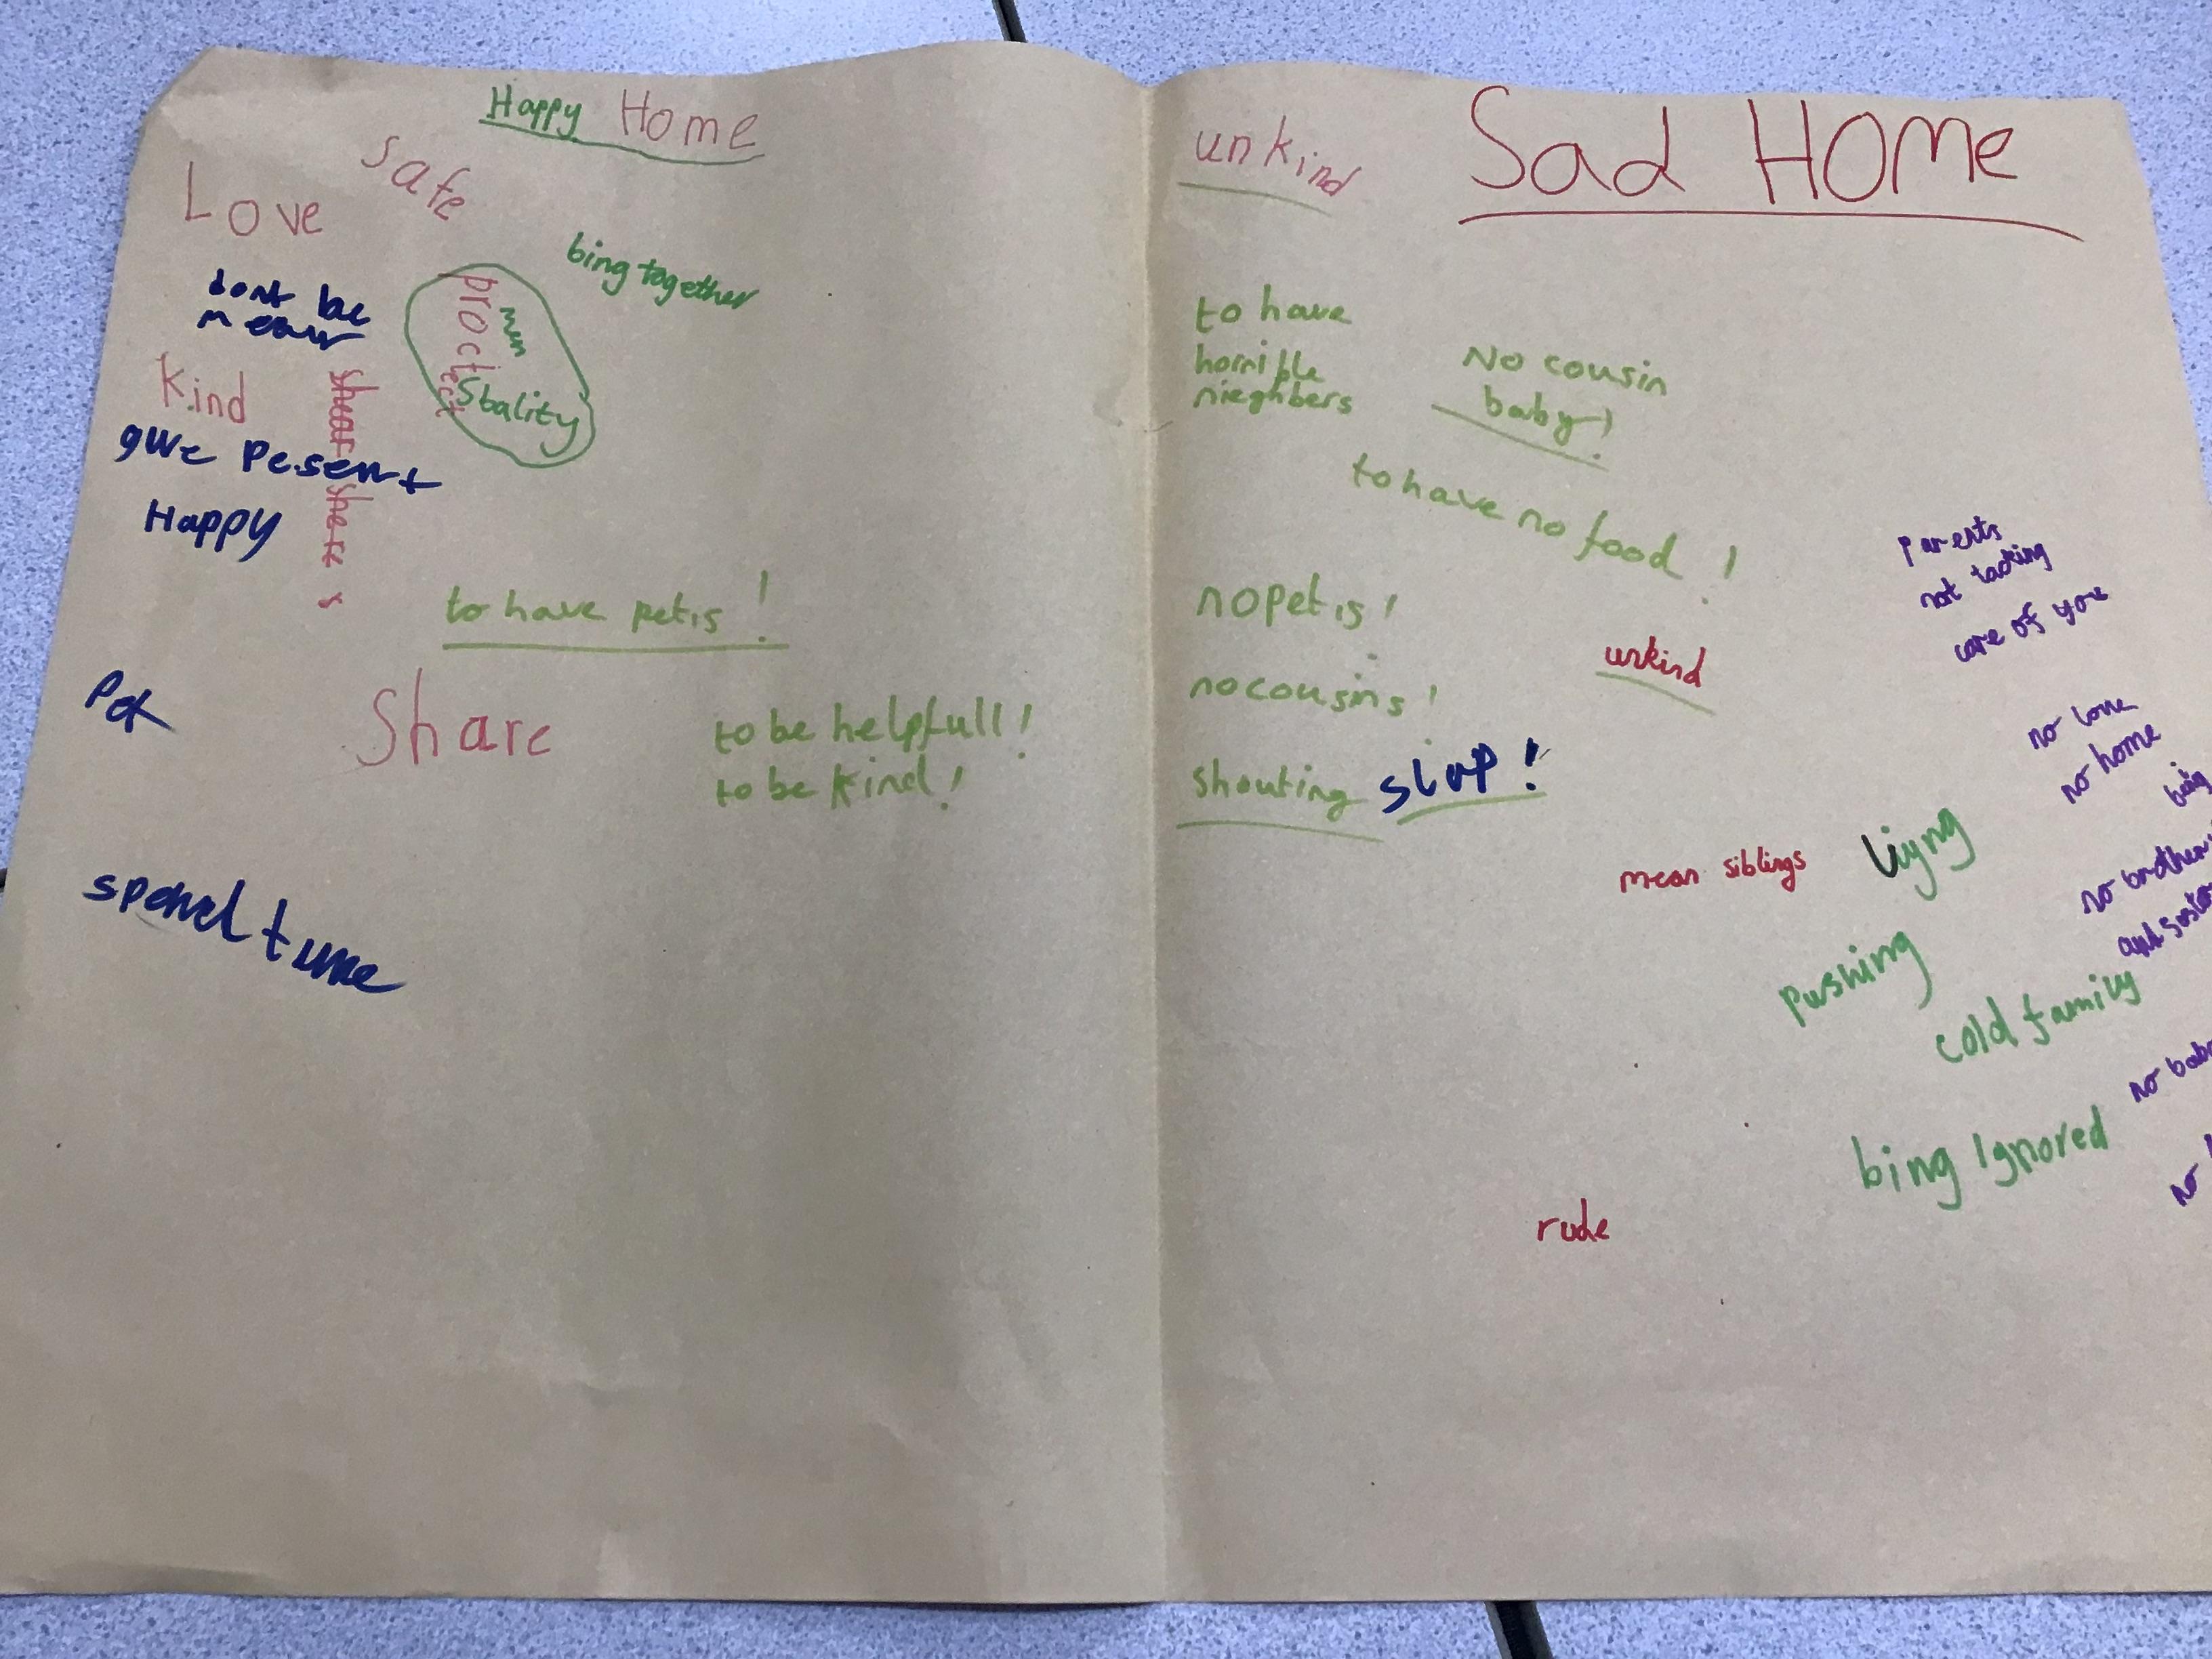 Happy Home
Safe
Love
bing together
dont be
mean
proctect
Stality
Kind
shear
give Pesent
Happy
shere
s
to have petis!
Pet
Share
to be helpfull!
to be kind!
spend time
Sad HOme
unkind
to have
horrible
nieghbers
No cousin
baby!
to have no food!
Parents
not tacking
care of you
no pet is!
unkind
no cousins!
no love
no home
shouting slap!
mean siblings
liyng
no brother
and sister
pushing
cold family
bing Ignored
rude